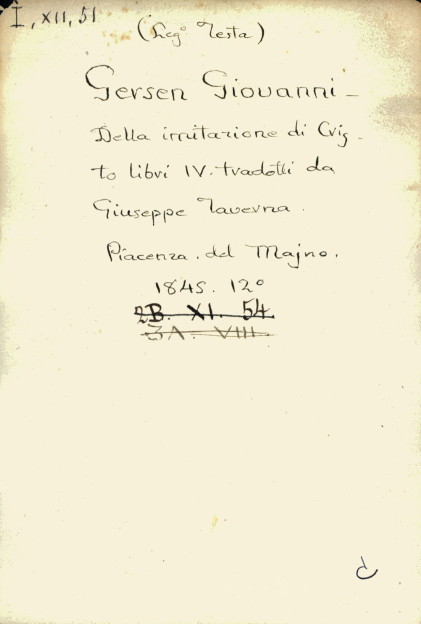 I, XII, 51
(Leg° Testa)
Gersen Giovanni -
Della imitazione di Cris-
to libri IV. tradotti da
Giuseppe Taverna.
Piacenza. del Majno.
1845. 12°
2B. XI. 54.
3A. VIII.